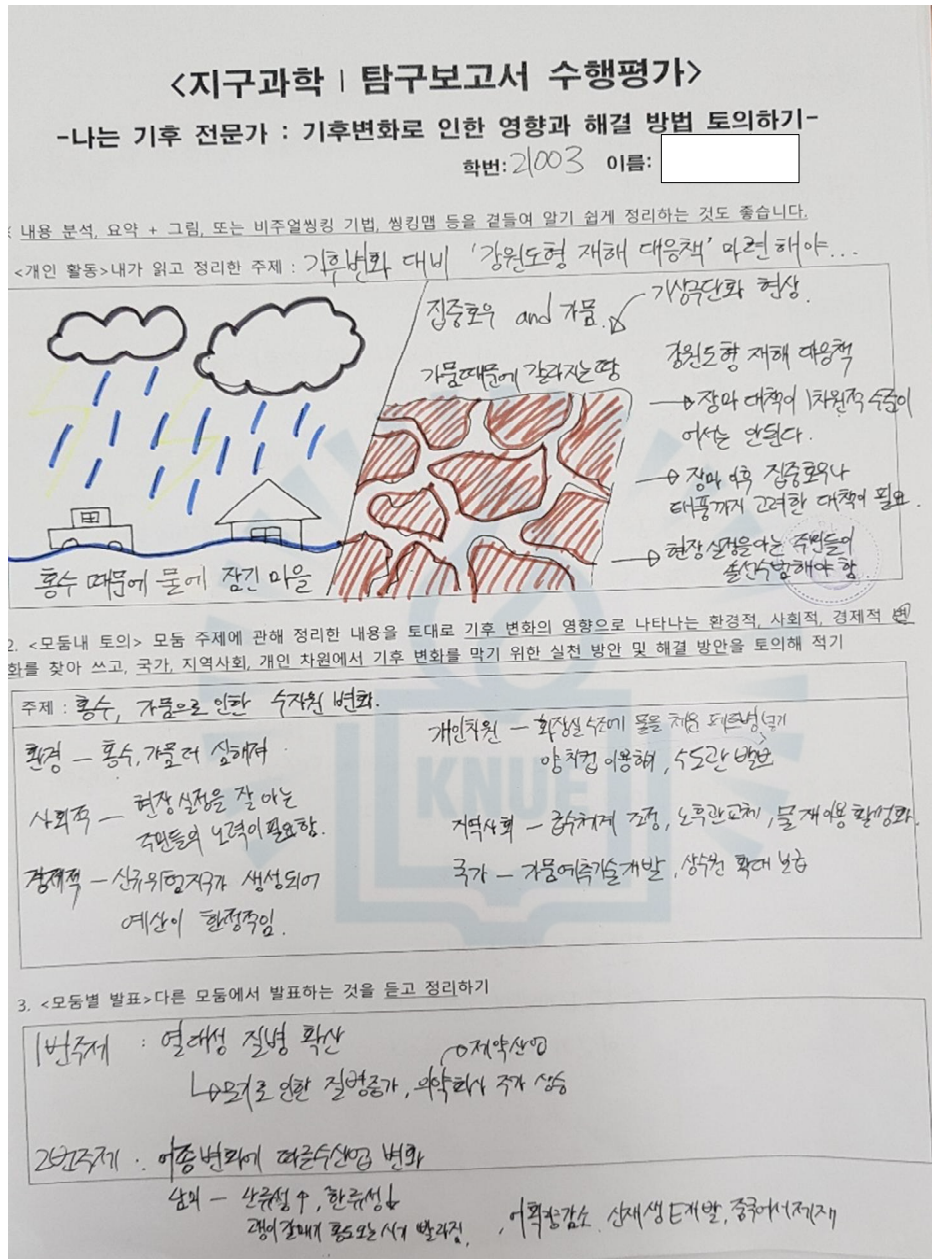 <지구과학 I 탐구보고서 수행평가>
-나는 기후 전문가 : 기후변화로 인한 영향과 해결 방법 토의하기-
학번: 21003 이름:
내용 분석, 요약 + 그림, 또는 비주얼씽킹 기법, 씽킹맵 등을 곁들여 알기 쉽게 정리하는 것도 좋습니다.
<개인 활동>내가 읽고 정리한 주제 : 기후변화 대비 '강원도형 재해 대응책' 마련해야...
집중호우 and 가뭄.
기상극단화 현상.
가뭄때문에 갈라지는 땅
홍수 때문에 물에 잠긴 마을
강원도형 재해 대응책
→ 장마 대책이 1차원적 수준이
어서는 안된다.
→ 장마 이후 집중호우나
태풍까지 고려한 대책이 필요.
→ 현장실정을 아는 주민들이
솔선수범해야 함
2. <모둠내 토의> 모둠 주제에 관해 정리한 내용을 토대로 기후 변화의 영향으로 나타나는 환경적, 사회적, 경제적 변
화를 찾아 쓰고, 국가, 지역사회, 개인 차원에서 기후 변화를 막기 위한 실천 방안 및 해결 방안을 토의해 적기
주제 : 홍수, 가뭄으로 인한 수자원 변화.
환경 - 홍수, 가뭄 더 심해져
사회적 - 현장 실정을 잘 아는
주민들의 노력이 필요함.
경제적 - 산류위험지구가 생성되어
예산이 한정적임.
개인차원 - 화장실 수조에 물을 채운 페트병 넣기
양치컵 이용하기, 수도관
지역사회 - 급수체계 조정, 노후관교체, 물 재이용 활성화.
국가 - 가뭄예측기술개발, 상수원 확대 보급
KNUE
3. <모둠별 발표>다른 모둠에서 발표하는 것을 듣고 정리하기
1번주제 : 열대성 질병 확산
↳모기로 인한 질병증가, 의약회사 주가 상승
제약산업
2번주제 : 어종변화에 따른 수산업 변화
난류성↑, 한류성↓
괭이갈매기 홍도오는 시기 빨라짐
, 어획량감소, 신재생E개발, 중국어선제재